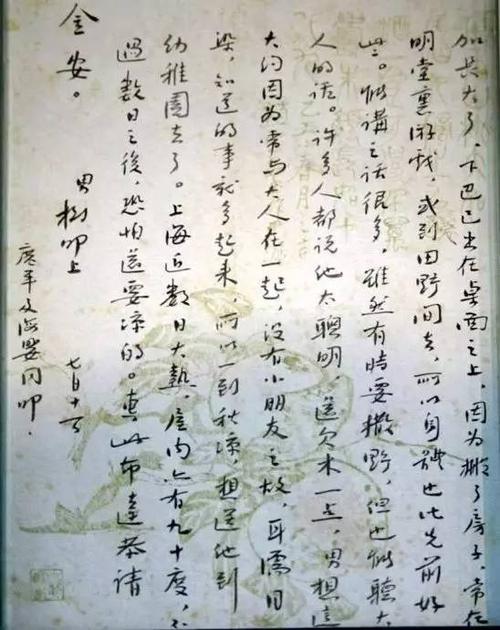 加共大了，下巴已出在桌面之上，因为搬了房子，常在
明堂里游戏，或到田野间去，所以身体也比先前好
些。能讲之话很多，虽然有时要撒野，但也能听大
人的话。许多人都说他太聪明，还欠木一点，男想这
大约因为常与大人在一起，没有小朋友之故，耳濡目
染，知道的事就多起来，所以一到秋凉，想送他到
幼稚园去了。上海近数日大热，屋内亦有九十度，不
过数日之后，恐怕还要凉的。专此布达恭请
金安。
男树叩上 七月十二日
广平及海婴同叩．